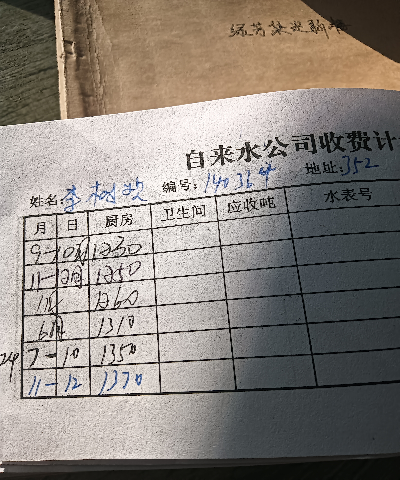 自来水公司收费计
姓名:李树欢 编号:140314 地址:352
月 日 厨房 卫生间 应收吨 水表号
9-10月 1230
11-12月 1250
1月 1260
6月 1310
7-10 1350
11-12 1370